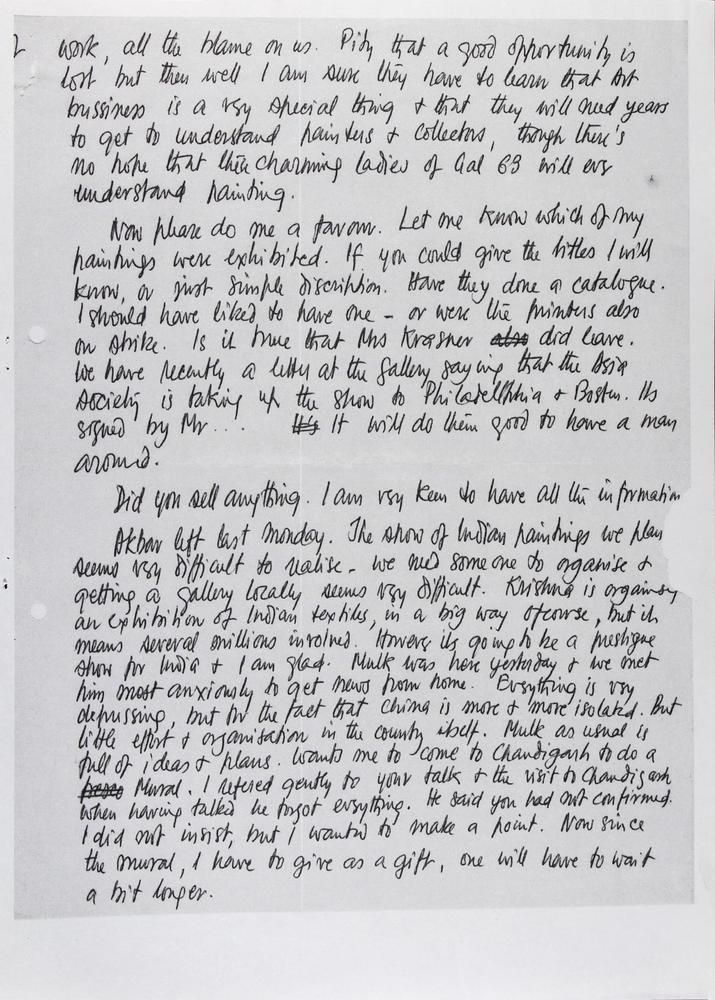 2
work, all the blame on us. Pity that a good opportunity is
lost but then well I am sure they have to learn that Art
bussiness is a vry special thing & that they will need years
to get to understand painters & collectors, though there's
no hope that the charming ladies of Gal 63 will evr
understand painting.
Now please do me a favour. Let me know which of my
paintings were exhibited. If you could give the titles I will
know, or just simple discription. Have they done a catalogue.
I should have liked to have one - or were the printers also
on strike. Is it true that Mrs Krasner also did leave.
We have recently a letter at the gallery saying that the Asia
Society is taking up the show to Philadellphia & Boston. Its
signed by Mr ... It's It will do them good to have a man
around.
Did you sell anything. I am vry keen to have all the information
Akbar left last Monday. The show of Indian paintings we plan
seems vry difficult to realise - we need someone to organise &
getting a gallery locally seems vry difficult. Krishna is organising
an exhibition of Indian textiles, in a big way ofcourse, but it
means several millions involved. However its going to be a prestigue
show for India & I am glad. Mulk was here yesterday & we met
him most anxiously to get news from home. Evrything is vry
depressing, but for the fact that China is more & more isolated. But
little effort & organisation in the country itself. Mulk as usual is
full of ideas & plans. Wants me to come to Chandigarh to do a
Mural. I refered gently to your talk & the visit to Chandigarh
when having talked he forgot evrything. He said you had not confirmed.
I did not insist, but I wanted to make a point. Now since
the mural, I have to give as a gift, one will have to wait
a bit longer.